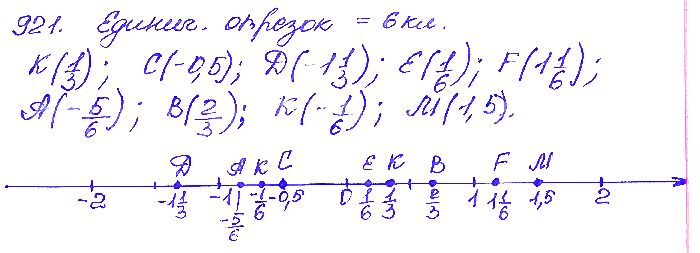 921. Единич. отрезок = 6 кл.
К(1/3); С(-0,5); Д(-1 1/3); Е(1/6); F(1 1/6);
А(-5/6); В(2/3); К(-1/6); М(1,5).
Д А К С Е К В F М
-2 -1 1/3 -1 -5/6 -1/6 -0,5 0 1/6 1/3 2/3 1 1 1/6 1,5 2